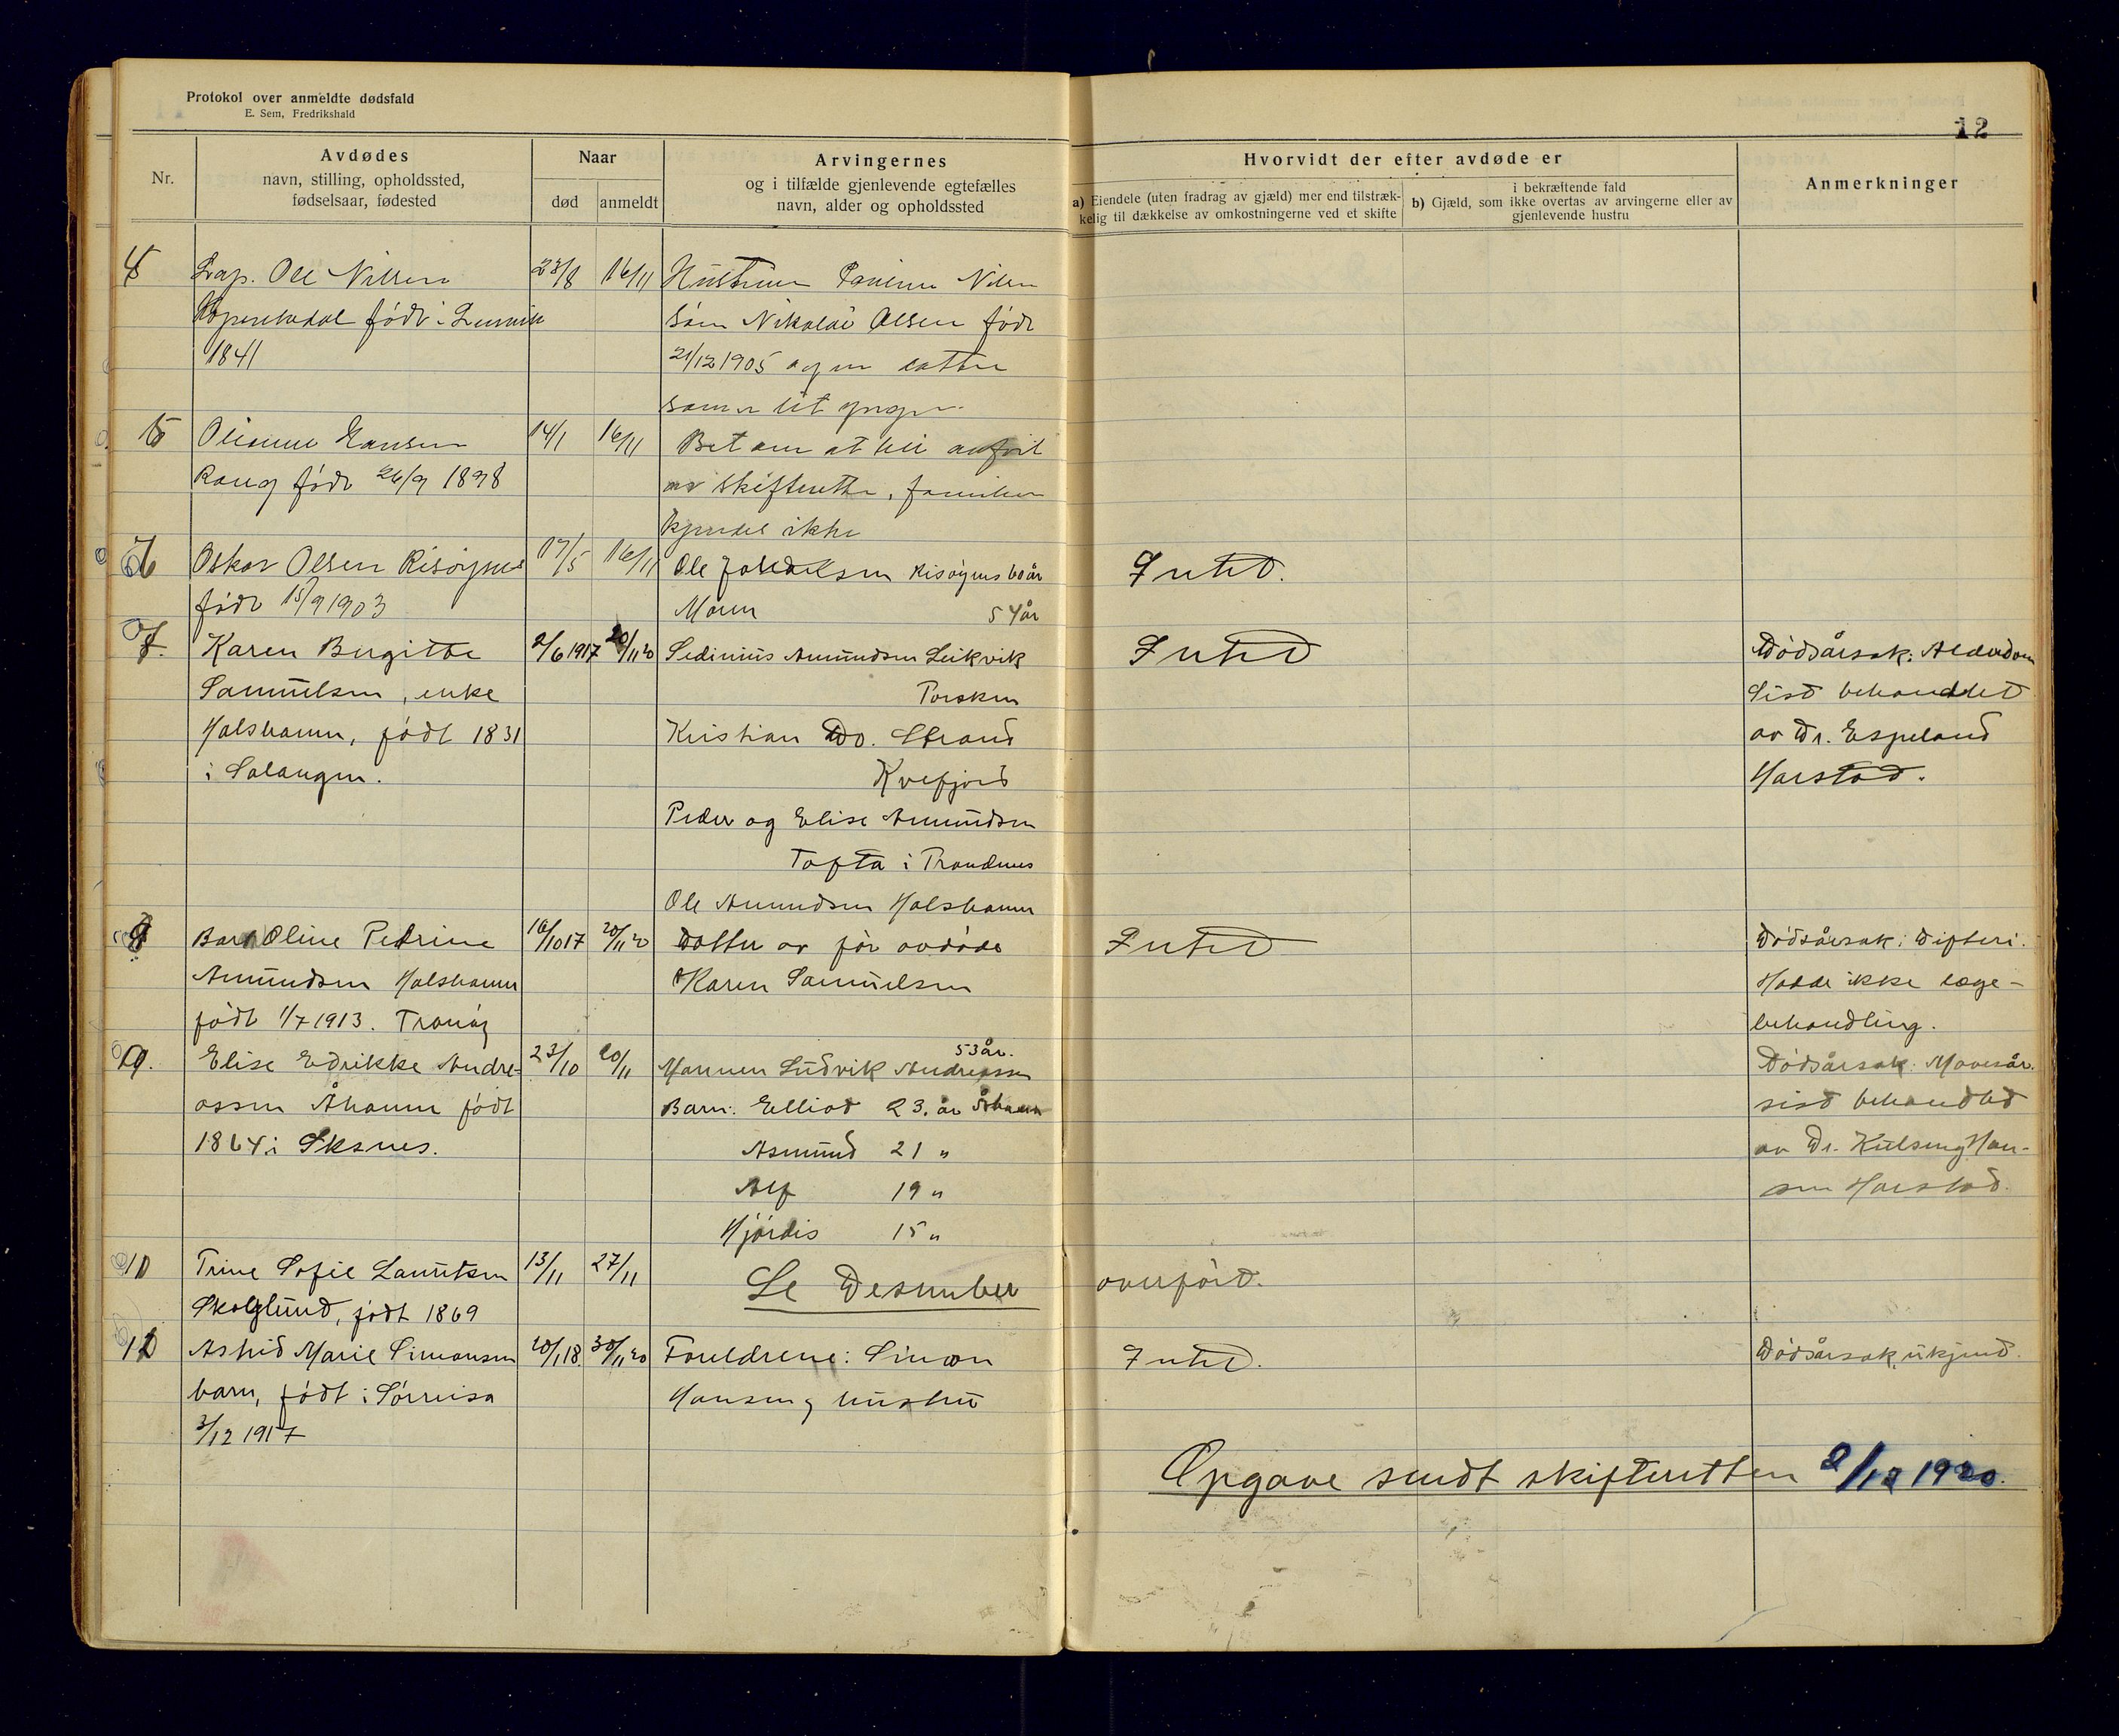 Protokol over anmeldte dødsfald
E. Sem, Fredrikshald
12
Nr.
Avdødes
navn, stilling, opholdssted,
fødselsaar, fødested
Naar
død
anmeldt
Arvingernes
og i tilfælde gjenlevende egtefælles
navn, alder og opholdssted
Hvorvidt der efter avdøde er
a) Eiendele (uten fradrag av gjæld) mer end tilstræk-
kelig til dækkelse av omkostningerne ved et skifte
i bekræftende fald
b) Gjæld, som ikke overtas av arvingerne eller av
gjenlevende hustru
Anmerkninger
Lap. Ole Nilsen 23/8 16/11 Hustruen Nilsen
født i
søn Nikolai Olsen født
1841
21/12 1905 og en datter
som er
5 Hansen 14/1 16/11 Bet om at bli
født 26/9 1898
av skifteretten, familien
kjendes ikke
6 Oskar Olsen Risøynes 17/5 16/11 Ole Risøynes 60 år Intet.
født 15/9 1903
54 år
7. Karen Bergitte 2/6 1917 20/11 20 Sedinius Amundsen Leikvik Intet Dødsårsak: Alderdom
Samuelsen, enke
Torsken
Sist behandlet
Halshamn, født 1831
Kristian Do. Strand
av Dr. Espeland
i Salangen.
Kvefjord
Harstad.
Peder og Elise Amundsen
Tofta i Trondenes
Ole Amundsen Halshamn
8 Barn Oline Petrine 16/10 17 20/11 20 Datter av før avdøde Intet Dødsårsak: Difteri.
Amundsen Halshamn
Karen Samuelsen
Hadde ikke læge-
født 1/7 1913. Tranøy
behandling.
9. Elise Edrikke Andre- 23/10 20/11 Mannen Ludvik Andreassen 53 år. Dødsårsak: Mavesår.
assen Åhamn født
Barn: Elliod 23. år Åhamn
sist behandlet
1864 i
Asmund 21 "
av Dr. Han-
Alf 19 "
sen Harstad.
Hjørdis 15 "
10 Trine Sofie Lauritsen 13/11 27/11 Se Desember overført.
Skoglund, født 1869
Astrid Marie Simonsen 20/1 18. 30/11 20 Foreldrene: Simon Intet. Dødsårsak ukjend.
barn, født i Sørreisa
Hansen og hustru
3/12 1917
Opgave sendt skifteretten 2/12 1920.